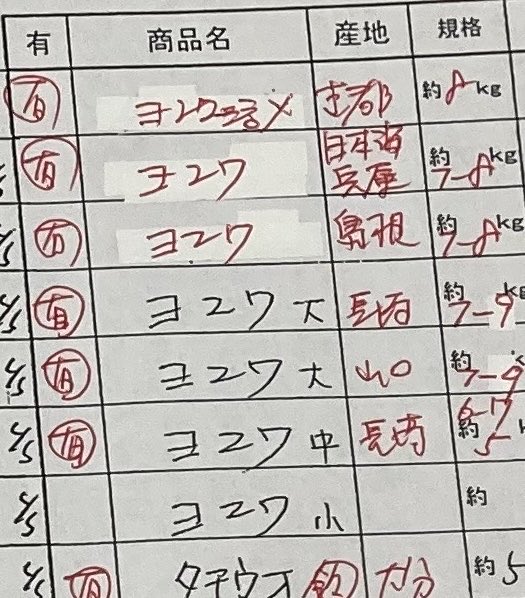 有 商品名 産地 規格
有 ヨコワ 京都 約8kg
有 ヨコワ 日本海 兵庫 約7-8kg
有 ヨコワ 島根 約7-8kg
有 ヨコワ 大 長崎 約7-9kg
有 ヨコワ 大 山口 約7-9
有 ヨコワ 中 長崎 約5
ヨコワ 小 約
有 タチウオ 大分 約5